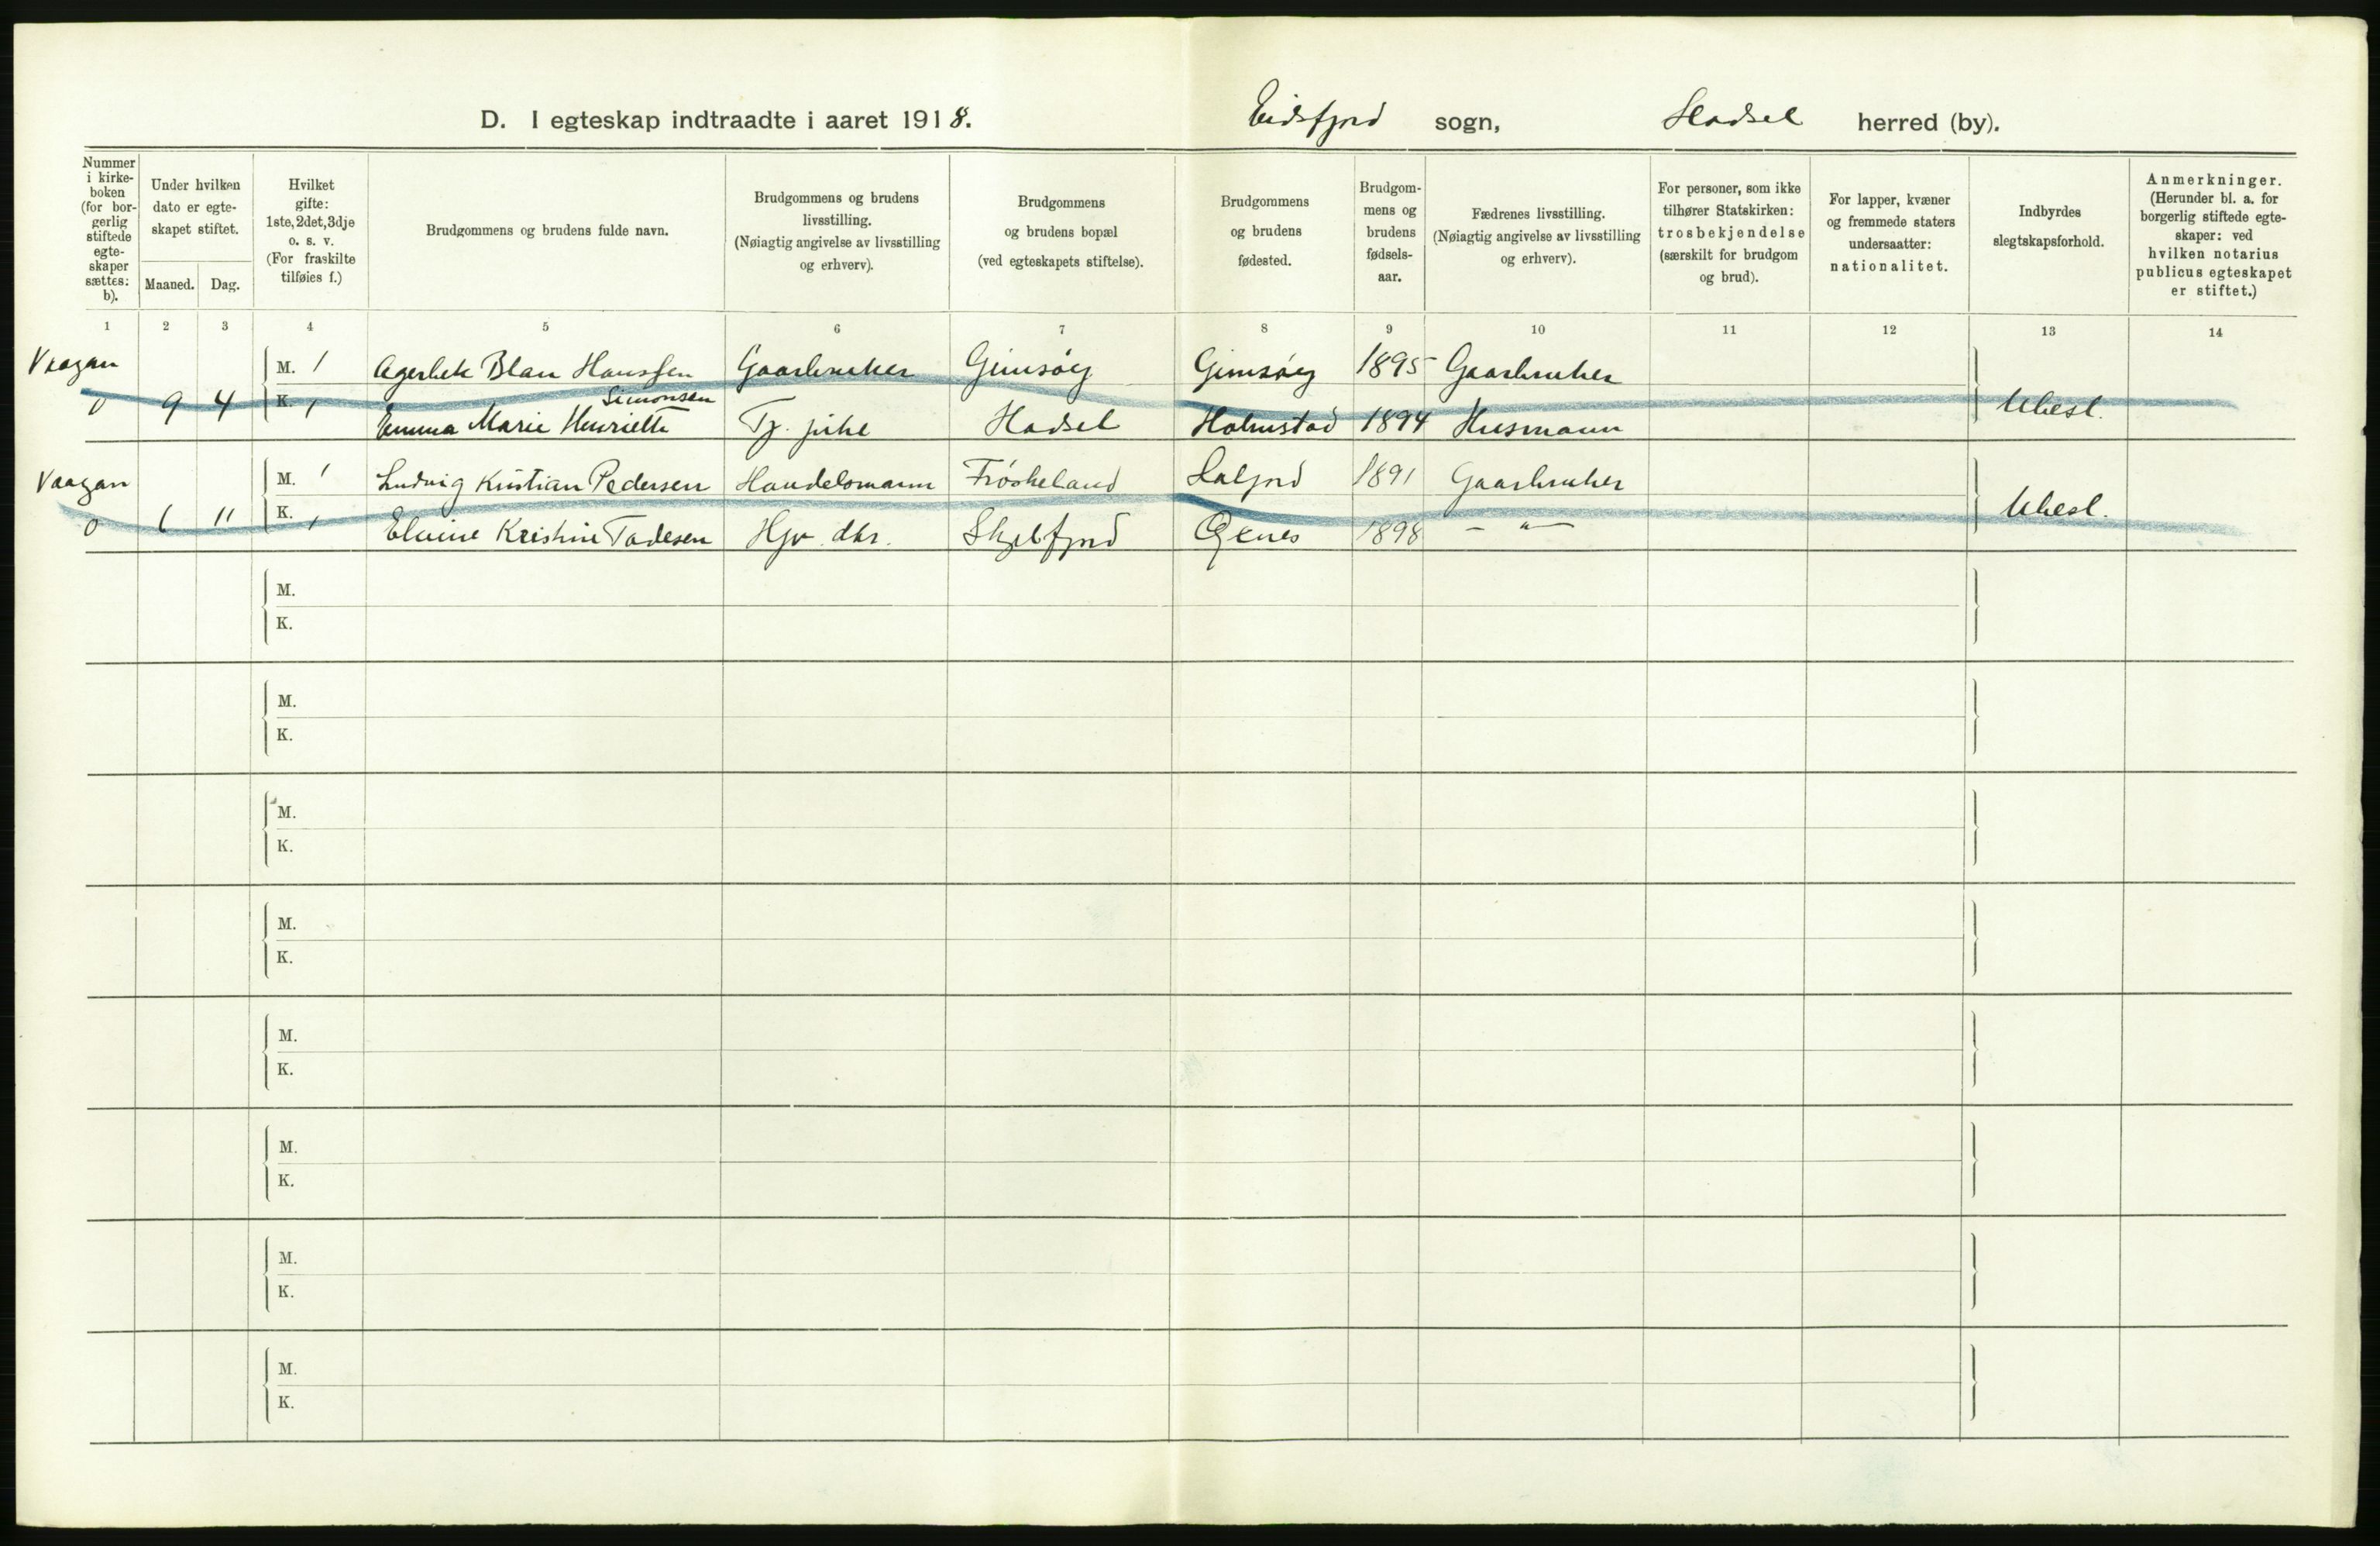 D. I egteskap indtraadte i aaret 1918. Eidsfjord sogn, Hadsel herred (by).
Nummer i kirke-boken (for bor-gerlig stiftede egte-skaper sættes: b).
Under hvilken dato er egte-skapet stiftet.
Maaned. Dag.
Hvilket gifte: 1ste, 2det, 3dje o. s. v. (For fraskilte tilføies f.)
Brudgommens og brudens fulde navn.
Brudgommens og brudens livsstilling. (Nøiagtig angivelse av livsstilling og erhverv).
Brudgommens og brudens bopæl (ved egteskapets stiftelse).
Brudgommens og brudens fødested.
Brudgom-mens og brudens fødsels-aar.
Fædrenes livsstilling. (Nøiagtig angivelse av livsstilling og erhverv).
For personer, som ikke tilhører Statskirken: trosbekjendelse (særskilt for brudgom og brud).
For lapper, kvæner og fremmede staters undersaatter: nationalitet.
Indbyrdes slegtskapsforhold.
Anmerkninger. (Herunder bl. a. for borgerlig stiftede egte-skaper: ved hvilken notarius publicus egteskapet er stiftet.)
1 2 3 4 5 6 7 8 9 10 11 12 13 14
Vaagan
M. 1 Blau Hanssen Gaarbruker Gimsøy Gimsøy 1895 Gaarbruker
9 4 K. 1 Emma Marie Henriette Simonsen Tj. pike Hadsel Holmstad 1894 Husmann Ubesl.
Vaagan
M. 1 Ludvig Kristian Pedersen Handelsmann Frøskeland 1891 Gaarbruker
6 11 K. 1 Kristine Hjv. dtr. Skjelfjord 1898 – " – Ubesl.
M.
K.
M.
K.
M.
K.
M.
K.
M.
K.
M.
K.
M.
K.
M.
K.